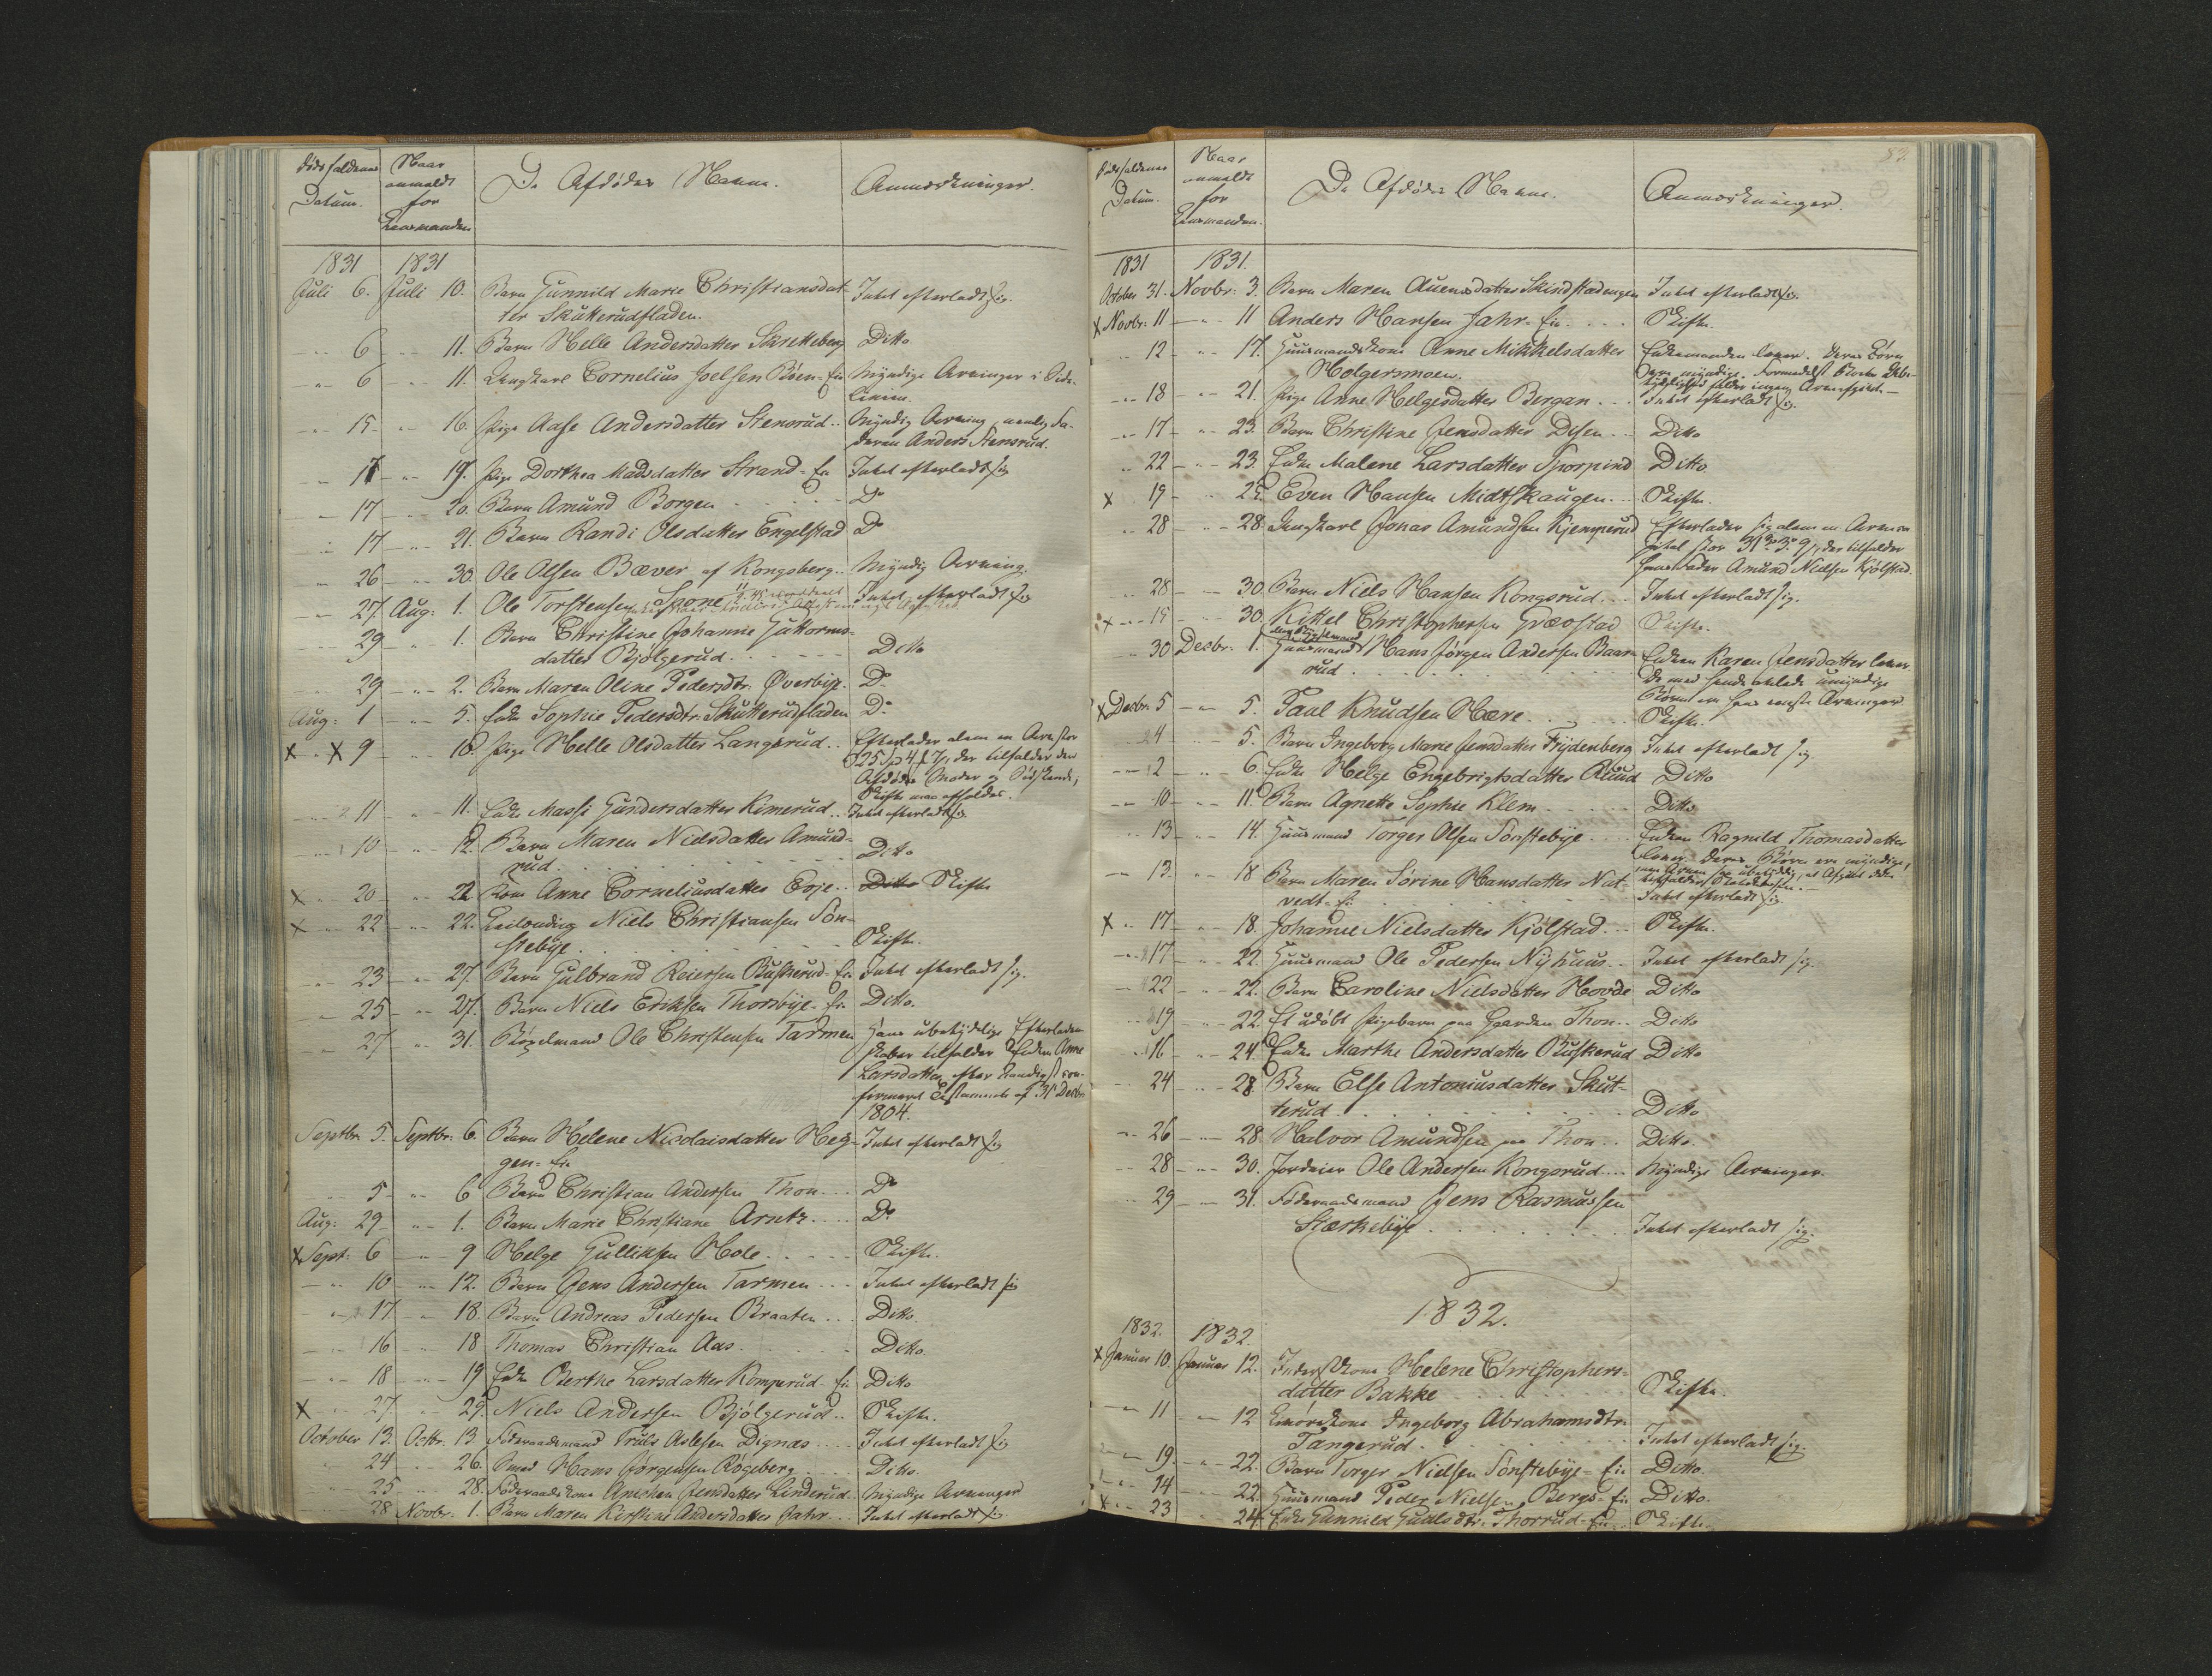 Dødsfaldenes Datum.
Naar anmeldt for Lensmanden
De Afdødes Navne.
Anmærkninger.
1831 1831
Juli 6. Juli 10. Barn Gunnild Marie Christiansdat- Intet efterladt sig.
ter Skutterudfladen.
" 6 " 11. Barn Helle Andersdatter Skretteberg Ditto
" 6 " 11. Ungkarl Cornelius Joelsen Bøen-Eie Myndige Arvinger i Side-
linien.
" 15 " 16. Pige Aase Andersdatter Stensrud.. Myndig Arving, nemlig Fa-
deren Anders Stensrud.
" 17 " 19. Pige Dorthea Madsdatter Strand-Eie Intet efterladt sig
" 17 " 20. Barn Amund Borgen Do
" 17 " 21. Barn Randi Olsdatter Engelstad Do
" 26 " 30. Ole Olsen Bæver af Kongsberg.. Myndig Arving.
" 27 Aug: 1. Ole Torstensen Skone Intet efterladt sig
" 29 " 1. Barn Christine Johanne Guttorms-
datter Bjølgerud. Ditto
" 29 " 2. Barn Maren Oline Pedersdtr. Øverbye. Do
Aug: 1 " 5. Enke Sophie Pedersdtr. Skutterudfladen Do
X " X 9 " 10. Pige Helle Olsdatter Langerud.. Efterlader alene en Arv stor
25 , der tilfalder den
Afdødes Moder og Sødskende,
Skifte  afholdes.
" 11 " 11. Enke Massi Gundersdatter Kimerud.. Intet efterladt sig
" 10 " 12. Barn Maren Nielsdatter Amund-
rud. Ditto
X " 20 " 22 Kone Anne Corneliusdatter Evje.. Ditto Skifte
X " 22 " 22. Niels Christiansen Søn-
stebye. Skifte.
" 23 " 27. Barn Gulbrand Reiersen Buskerud-Eie Intet efterladt sig.
" 25 " 27. Barn Niels Eriksen Thorsbye-Eie Ditto.
" 27 " 31. Bøxelmand Ole Christensen Tarmen Hans ubetydelige Efterladen-
skaber tilfalder Enken Anne
Larsdatter, efter  con-
firmeret Testamente af 31 Decbr
1804.
Septbr. 5. Septbr. 6. Barn Helene Nicolaisdatter Hæg- Intet efterladt sig
gen-Eie
" 5 " 6 Barn Christian Andersen Thon... Do
Aug: 29 " 1. Barn Marie Christiane Arntz.... Do
X Sept: 6 " 9 Helge Gulliksen Hole. Skifte.
" 10 " 12. Barn Jens Andersen Tarmen... Intet efterladt sig
" 17 " 18. Barn Andreas Pedersen Braaten... Ditto
" 16 " 18 Thomas Christian Aas. Ditto.
" 18 " 19 Enke Berthe Larsdatter Komperud-Eie Ditto
X " 27 " 29 Niels Andersen Bjølgerud.. Skifte.
October 13. Octbr. 13 Føderaadsmand Truls Aslesen Dignæs.... Intet efterladt sig
" 24 " 26. Smed Hans Jørgensen Røgeberg Ditto.
" 25 " 28. Føderaadskone Anichen Jensdatter Linderud.. Myndige Arvinger
" 28 Novbr. 1. Barn Maren Kirstine Andersdatter Jahr... Intet efterladt sig.
83.
Dødsfaldenes Datum.
Naar anmeldt for Lensmanden.
De Afdødes Navne.
Anmærkninger.
1831 1831.
October 31. Novbr. 3. Barn Maren Auensdatter Skindstadengen Intet efterladt sig.
X Novbr. 11 " 11 Anders Hansen Jahr-Eie.... Skifte.
" 12 " 17. Huusmandskone Anne Mikkelsdatter Enkemanden lever. Deres Børn
Holgersmoen. ere myndige. Formedelst Boets Ube-
tydelighed falder ingen Arveafgivt.
" 18 " 21. Pige Anne Helgesdatter Bergan... Intet efterladt sig.
" 17 " 23. Barn Christine Jensdatter Disen... Ditto
" 22 " 23. Enke Malene Larsdatter Sporpind Ditto
X 19 " 25. Even Hansen Midtskaugen... Skifte.
" 28 " 28. Ungkarl Jonas Amundsen Kjemperud Efterlader sig alene en Arve
stor 31 , der tilfalder
hans Fader Amund Nielsen Kjølstad.
" 28 " 30. Barn Niels Hansen Kongsrud... Intet efterladt sig.
X " 15 " 30. Kittel Christophersen Græostad Skifte.
" 30 Decbr. 1. Huusmand Hans Jørgen Andersen Baase- Enken Karen Jensdatter lever.
rud. De med hende avlede umyndige
Børn er hans eneste Arvinger
X Decbr. 5 " 5. Paul Knudsen Hære. Skifte.
" 4 " 5. Barn Ingeborg Marie Jensdatter Frydenberg Intet efterladt sig.
" 2 " 6. Enke Helge Engebrigtsdatter Ruud Ditto
" 10 " 11. Barn Agnette Sophie Klem. Ditto
" 13 " 14. Huusmand Torger Olsen Sønstebye. Enken Ragnild Thomasdatter
lever. Deres Børn ere myndige,
" 13. " 18 Barn Maren Sørine Hansdatter Nat-
vedt-Eie Intet efterladt sig.
X " 17 " 18. Johanne Nielsdatter Kjølstad... Skifte.
" 17 " 22. Huusmand Ole Pedersen Nyhuus.. Intet efterladt sig.
" 22 " 22. Barn Caroline Nielsdatter Hovde Ditto
" 19 " 22. Et udøbt Pigebarn paa Gaarden Thon.. Ditto
" 16 " 24. Enke Marthe Andersdatter Buskerud Ditto
" 24 " 28 Barn Else Antoniusdatter Skut-
terud. Ditto
" 26 " 28 Halvor Amundsen paa Thon.. Ditto.
" 28 " 30. Jordeier Ole Andersen Kongsrud... Myndige Arvinger.
" 29 " 31. Føderaadsmand Jens Rasmussen
Stærkebye. Intet efterladt sig.
1832.
1832. 1832.
X Januar 10. Januar 12. Inderstkone Helene Christophers-
datter Bakke Skifte.
" 11 " 12 Ingeborg Abrahamsdtr.
Tangerud. Intet efterladt sig.
" 19 " 22. Barn Torger Nielsen Sønstebye-Eie Ditto.
" 14 " 22. Huusmand Peder Nielsen Bergs-Eie Ditto.
X " 23 " 24. Enke Gunnild Gudlsdtr. Thorrud-Eie.. Skifte.